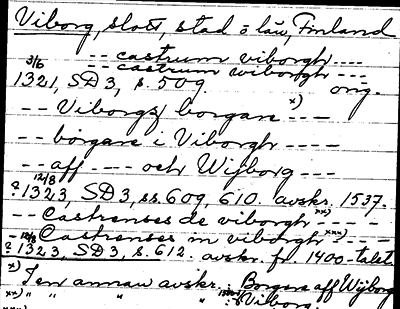 Viborg, slott, stad o län, Finland
-- castrum viborgh ----
-- castrum wiborgh ---
3/6
1321, SD 3, s. 509 orig.
-- Viborgs borgare x) --
-- borgare i Viborgh ----
-- aff ---- och Wijborg ---
12/8
? 1323, SD 3, ss. 609, 610. avskr. 1537.
-- Castrenses de viborgh xx) ----
-- Castrenses in viborgh xxx) ----
12/8
? 1323, SD 3, s. 612. avskr. fr. 1400-talet
x) I en annan avskr. Borgara aff Wijborg
xx) " " " " : Viborg.
xxx)